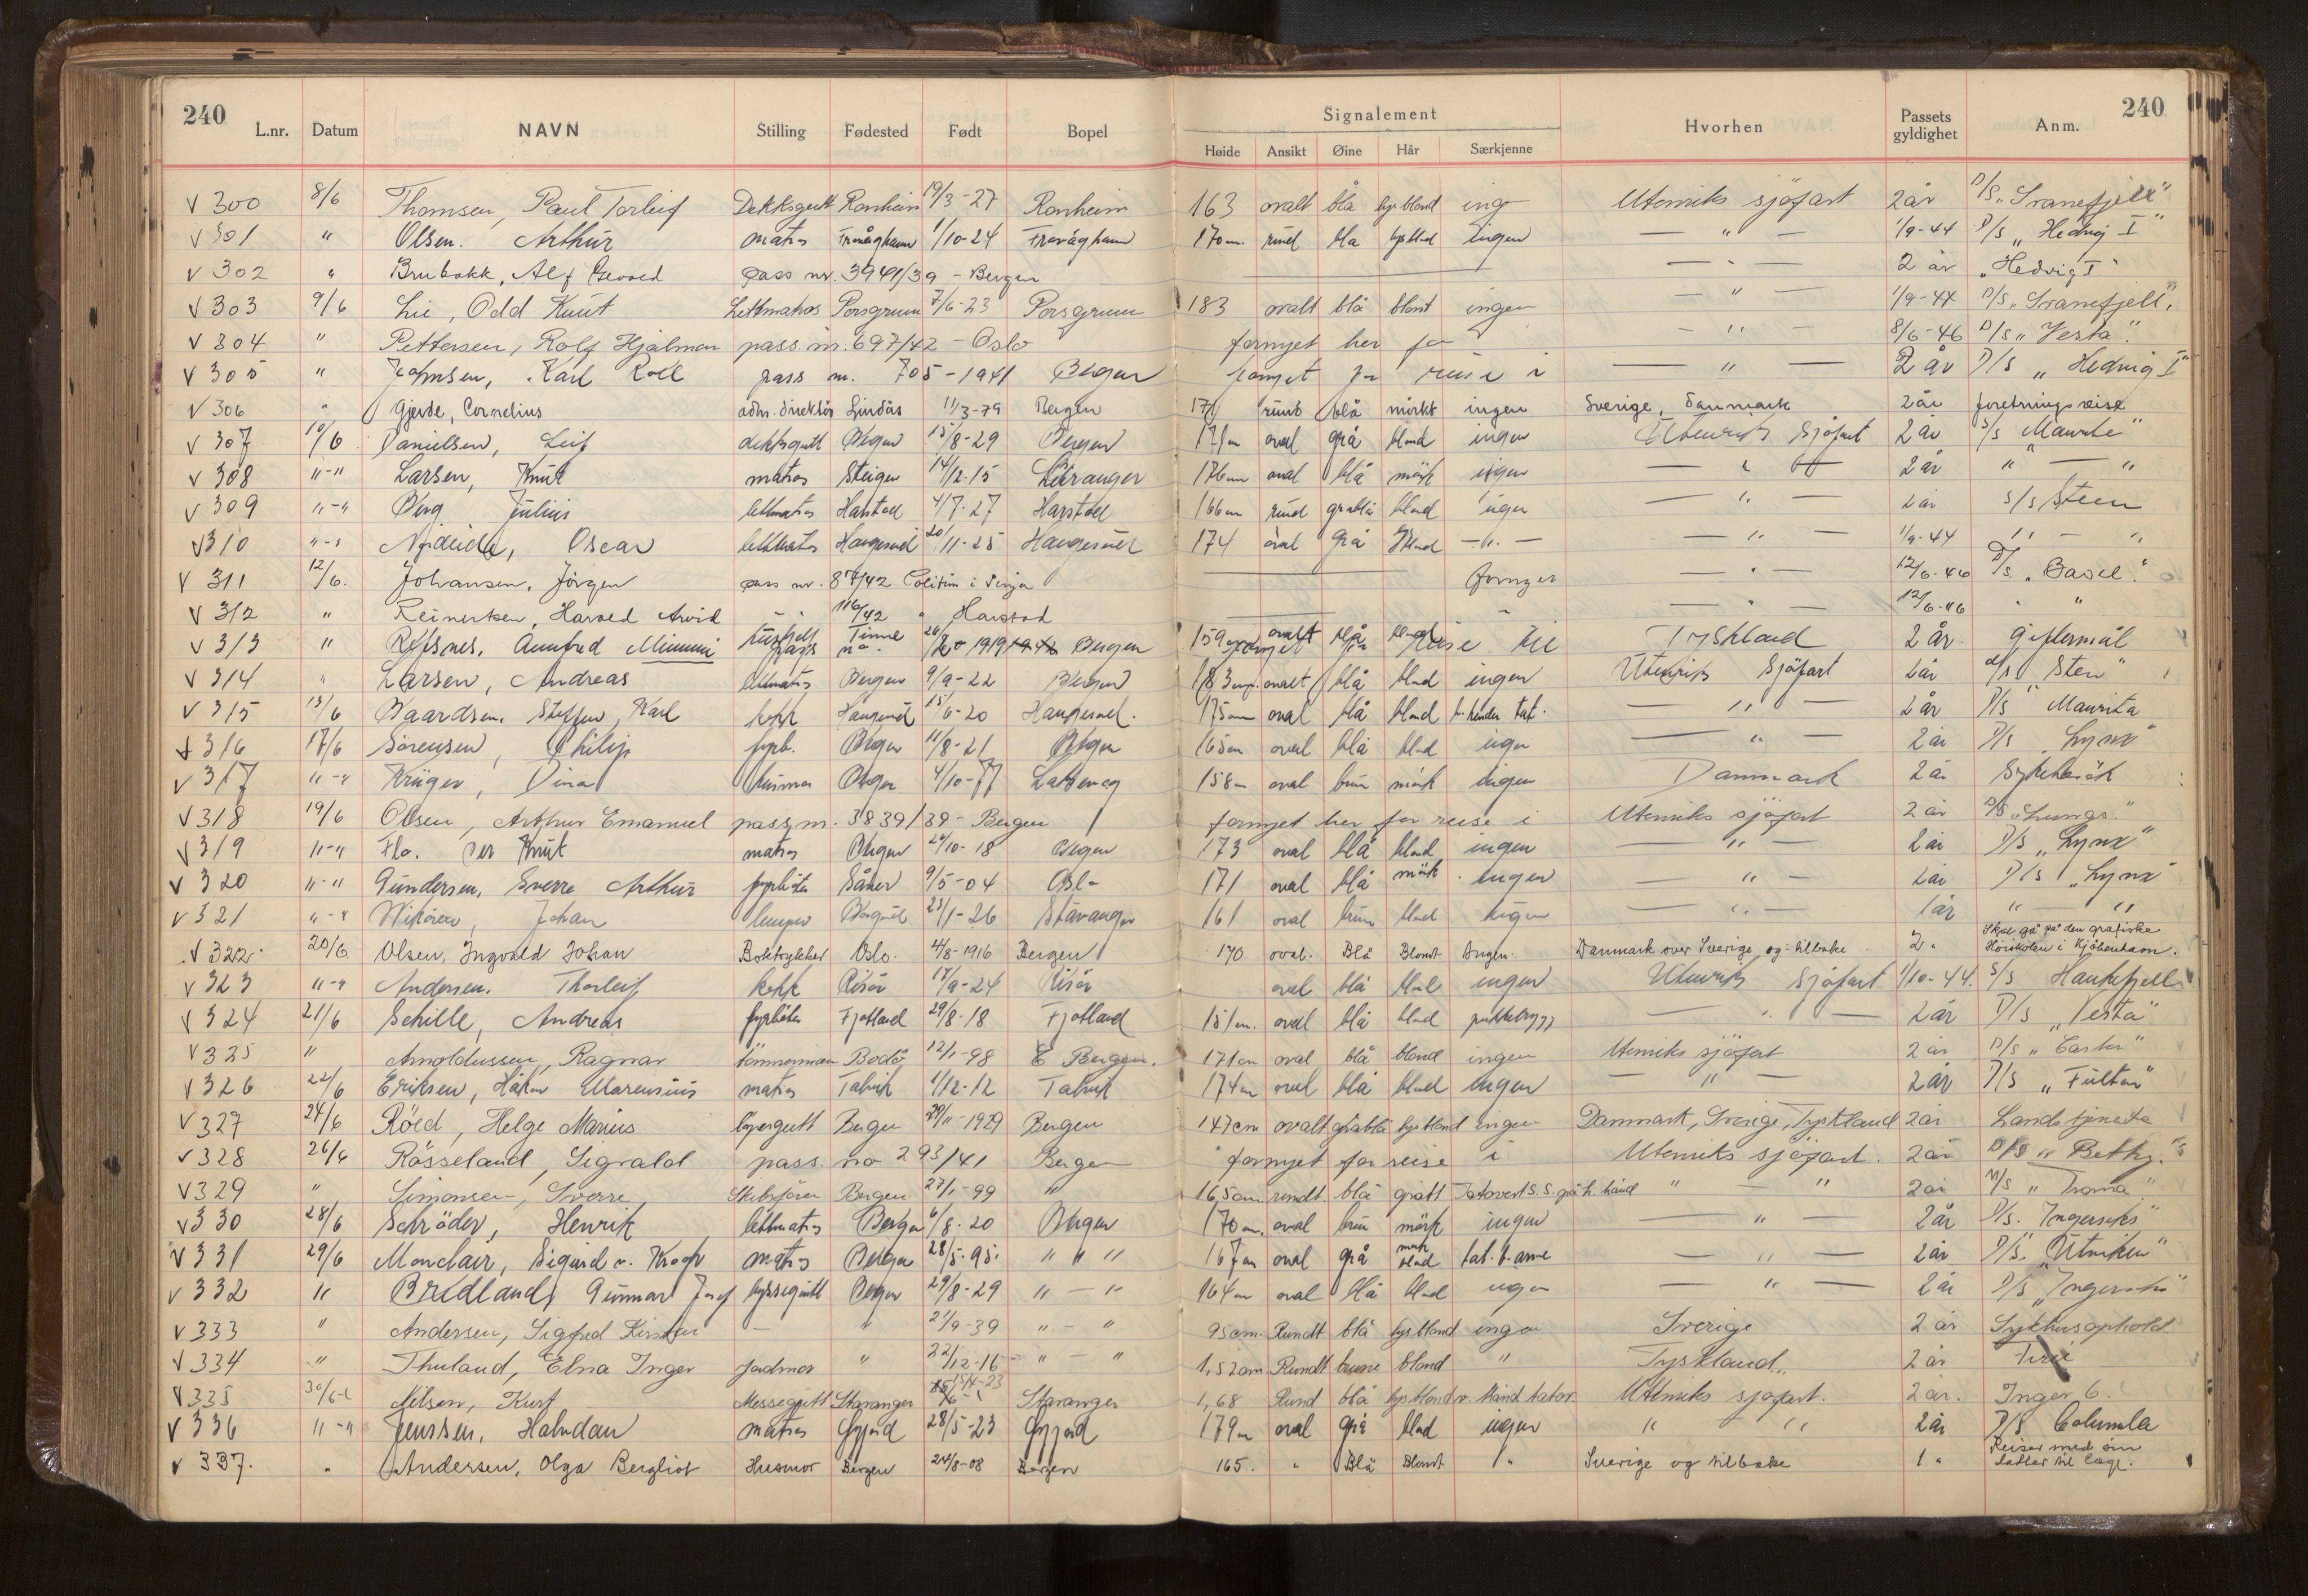 240 240
Signalement
L.nr. Datum NAVN Stilling Fødested Født Bopel Høide Ansikt Øine Hår Særkjenne Hvorhen Passets gyldighet Anm.
V 300 8/6 Thomsen, Paul Torleif Dekksgutt Ronheim 19/3-27 Ronheim 163 ovalt blå lysblond ing Utenriks sjøfart 2 år D/S „Svanefjell"
V 301 " Olsen. Arthur matros 1/10-24 170 cm. rund bla lysblond ingen — " — 1/9-44 D/S „Hedvig I"
V 302 " Brubakk, Alf pass nr. 3941/39 - Bergen — " — 2 år „Hedvig I"
V 303 9/6 Lie, Odd Knut Lettmatros Porsgrunn 7/6-23 Porsgrunn 183 ovalt blå blont ingen — " — 1/9-44 D/S „Svanefjell".
V 304 " Pettersen, Rolf Hjalmar pass. nr. 697/42 - Oslo fornyet her for — " — 8/6-46 D/S „Vesta".
V 305 " Johnsen, Karl Roll pass nr. 705-1941 Bergen fornyet for reise i — " — 2 år D/S „Hedvig I"
V 306 " Gjerde, Cornelius adm. direktør Lindås 11/3-79 Bergen 171 rund blå mörkt ingen Sverige, Danmark 2 år foretningsreise
V 307 10/6 Danielsen, Leif dekksgutt Bergen 15/8-29 Bergen 171 cm oval grå blond ingen Utenriks Sjøfart 2 år S/S Maurita"
V 308 "-" Larsen, Knut matros Steigen 14/12-15 176 cm oval blå mörk ingen 2 år " — "
V 309 "-" Berg Julius lettmatros Harstad 4/7-27 Harstad 166 cm rund gråblå blond ingen — " — 2 år S/S Steen
V 310 "-" Oscar lettmatros Haugesund 20/11-25 Haugesund 174 oval grå blond —"— — " — 1/9-44 " — "
V 311 12/6. Johansen, Jörgen pass nr. 87/42 Politim i Senja fornyes — " — 12/6-46 D/S. „Basel."
V 312 " Reinertsen, Harald Arvid " " 116/42 " Harstad — " — 12/6-46 " "
V 313 " Refsnes, Aumfred Mimmi pass no. Bergen 159 ovalt blå blond fornyet for reise til Tyskland 2 år giftermål
V 314 " Larsen, Andreas lettmatros Bergen 9/9-22 Bergen 183 cm. ovalt blå blond ingen Utenriks Sjøfart 2 år d/s Sten"
V 315 13/6 Baardsen, Steffen Karl kokk Haugesund 15/6-20 Haugesund. 175 cm oval blå blond b. hender tat. — " — 2 år D/S " Maurita
V 316 17/6 Sørensen, Philip fyrb. Bergen 11/8-21 Bergen 165 cm oval blå blond ingen — " — 2 år D/S „Lynx"
V 317 "-" Krüger, Dina husmor Bergen 4/10-77 Laksevåg 158 cm oval brun mörk ingen Danmark 2 år Sykebesök
V 318 19/6 Olsen, Arthur Emanuel pass nr. 3839/39 - Bergen fornyet her for reise i Utenriks sjøfart 2 år
V 319 "-" Flo. Per Knut matros Bergen 24/10-18 Bergen 173 oval blå blond ingen — " — 2 år D/S „Lynx"
V 320 "-" Gundersen, Sverre Arthur fyrböter Såner 9/5-04 Oslo 171 oval blå mörk ingen — " — 2 år D/S „Lynx
V 321 "-" Johan lemper 23/1-26 Stavanger 161 oval brun blond ingen — " — 1 år " — "
V 322. 20/6 Olsen, Ingvald Johan Boktrykker Oslo. 4/8-1916 Bergen 170 oval. Blå Blondt Ingen. Danmark over Sverige og tilbake 2 " Skal gå på den grafiske Höiskolen i Kjöbenhavn.
V 323 "-" Andersen. Thorleif kokk Risör 17/9-24 Risör oval blå blond ingen Utenriks Sjøfart 1/10-44. S/S Haukefjell
V 324 21/6 Schille, Andreas fyrböter Fjotland 29/8-18 Fjotland 151 cm. oval blå blond pukkelrygg — " — 2 år D/S „Vesta"
V 325 " Arnoldussen, Ragnar tömmermann Bodö 12/1-98 Bergen. 171 cm oval blå blond ingen Utenriks sjöfart 2 år D/S „Castor"
V 326 22/6 Eriksen, Håkon Marensius matros Talvik 1/12-12 Talvik 174 cm oval blå blond ingen — " — 2 år D/S „Fulton"
V 327 24/6 Röed, Helge Marius löpergutt Bergen 29/11-1929 Bergen 147 cm ovalt gråblå lysblond ingen Danmark, Sverige, Tyskland 2 år Landstjeneste
V 328 26/6 Rösseland, Sigvald pass. no 293/41 Bergen fornyet for reise i Utenriks sjöfart. 2 år D/S „Betty."
V 329 " Simonsen, Sverre Skibsfører Bergen 27/1-99 " 165 cm. rundt blå grått Tatovert S.S. på h. hånd " — " 2 år M/S „Troma"
V 330 28/6 Schröder, Henrik lettmatros Bergen 6/8-20 Bergen 170 cm. oval brun mörk ingen — " — 2 år D/S. Ingerseks"
V 331 29/6 Monclair, Sigurd v. Krogh matros Bergen 28/5-95. " " " 167 cm oval grå mörk blond tat. b. arme — " — 2 år D/S. „Utviken"
V 332 " Bredland, Gunnar Josef byssegutt Bergen 29/8-29 " — " 164 cm oval blå blond ingen — " — 2 år D/S
V 333 " Andersen, Sigfred Kirsten — " 21/9-39 " — " 95 cm. Rundt blå lysblond ingen Sverige 2 år Sykehusophold
V 334 " Thuland, Elna Inger Jordmor " 22/12-16 " — " 1,52 cm Rundt brune blond " Tyskland. 2 år
V 335 30/6 Nilsen, Kurt Messegutt Stavanger 15/4-23 Stavanger 1,68 Rund blå lysblond v. hånd tatov. Utenriks sjøfart. 2 år. Inger 6.
V 336 "-" Jenssen, Halvdan matros 28/5-23 179 cm oval grå blond ingen " " 2 år D/S Columba
V 337. " Andersen, Olga Bergliot Husmor Bergen 24/8-08 Bergen 165. " Blå Blondt " Sverige og tilbake 1 " Reiser med sin datter til læge.